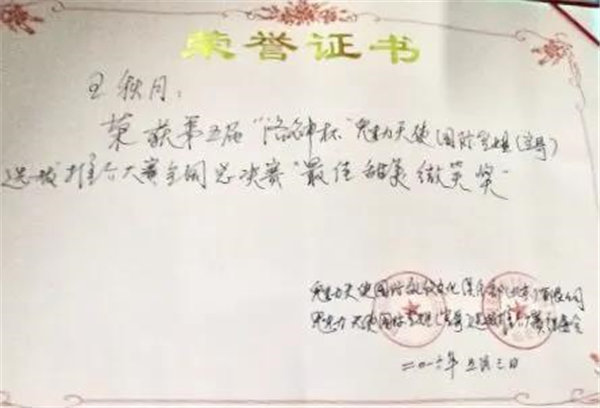 荣誉证书
王秋月：
荣获第五届"洛神杯"魅力天使国际
选拔推介大赛全国总决赛"最佳甜美微笑奖"
魅力天使国际文化（北京）有限公司
魅力天使国际选拔推介大赛组委会
二〇一六年五月三日